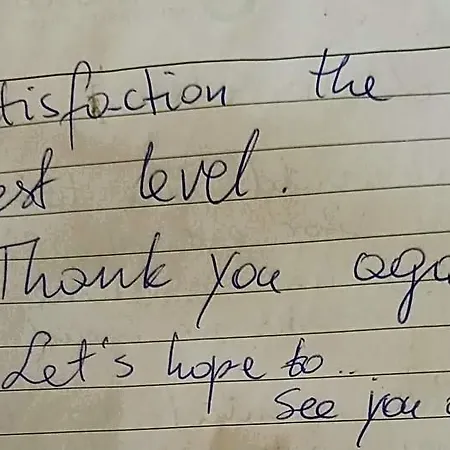 tisfaction the
est level.
Thank you aga
Let's hope to..
see you